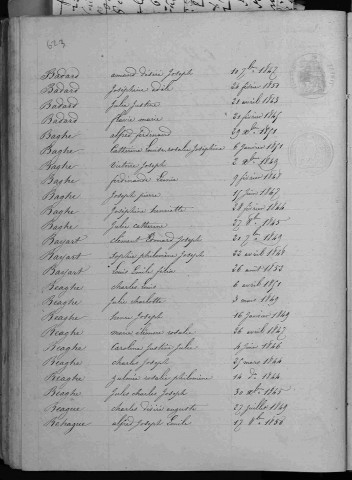 623
Badard amand désiré Joseph 10 7bre 1847
Badard Joséphine adèle 26 février 1851
Badard Julie Justine 21 avril 1843
Badard flavie marie 20 février 1845
Baghe alfred ferdinand 29 Xbre 1851
Baghe Catherine Louise rosalie Joséphine 6 Janvier 1851
Baghe Victoire Joseph 2 Xbre 1849
Baghe ferdinande Louise 9 février 1848
Baghe Joseph pierre 1847
Baghe Joséphine henriette 28 février 1844
Baghe Julie catherine 27 8bre 1845
Bayart clement Edouard Joseph 21 7bre 1849
Bayart Sophie philomène Joseph 22 avril 1848
Bayart Louis Emile félix 26 août 1852
Béaghe charles Louis 6 avril 1851
Béaghe Julie charlotte 3 mars 1849
Béaghe Joseph 16 Janvier 1849
Béaghe marie étienne rosalie 26 avril 1847
Béaghe Caroline Justine Julie 4 Juin 1846
Béaghe charles Joseph 25 mars 1844
Béaghe Zulmie rosalie philomène 14 do 1844
Béaghe Jules charles Joseph 30 Xbre 1845
Béague charles désiré auguste 27 Juillet 1849
Béhague alfred Joseph Emile 17 8bre 1850